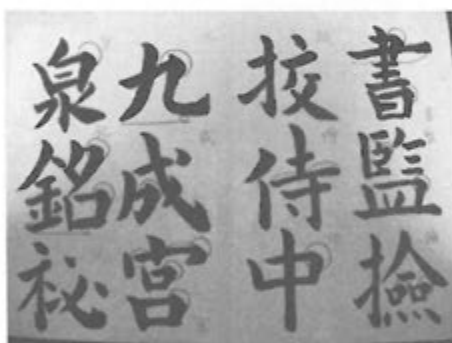 書監撿
挍侍中
九成宮
泉銘祕